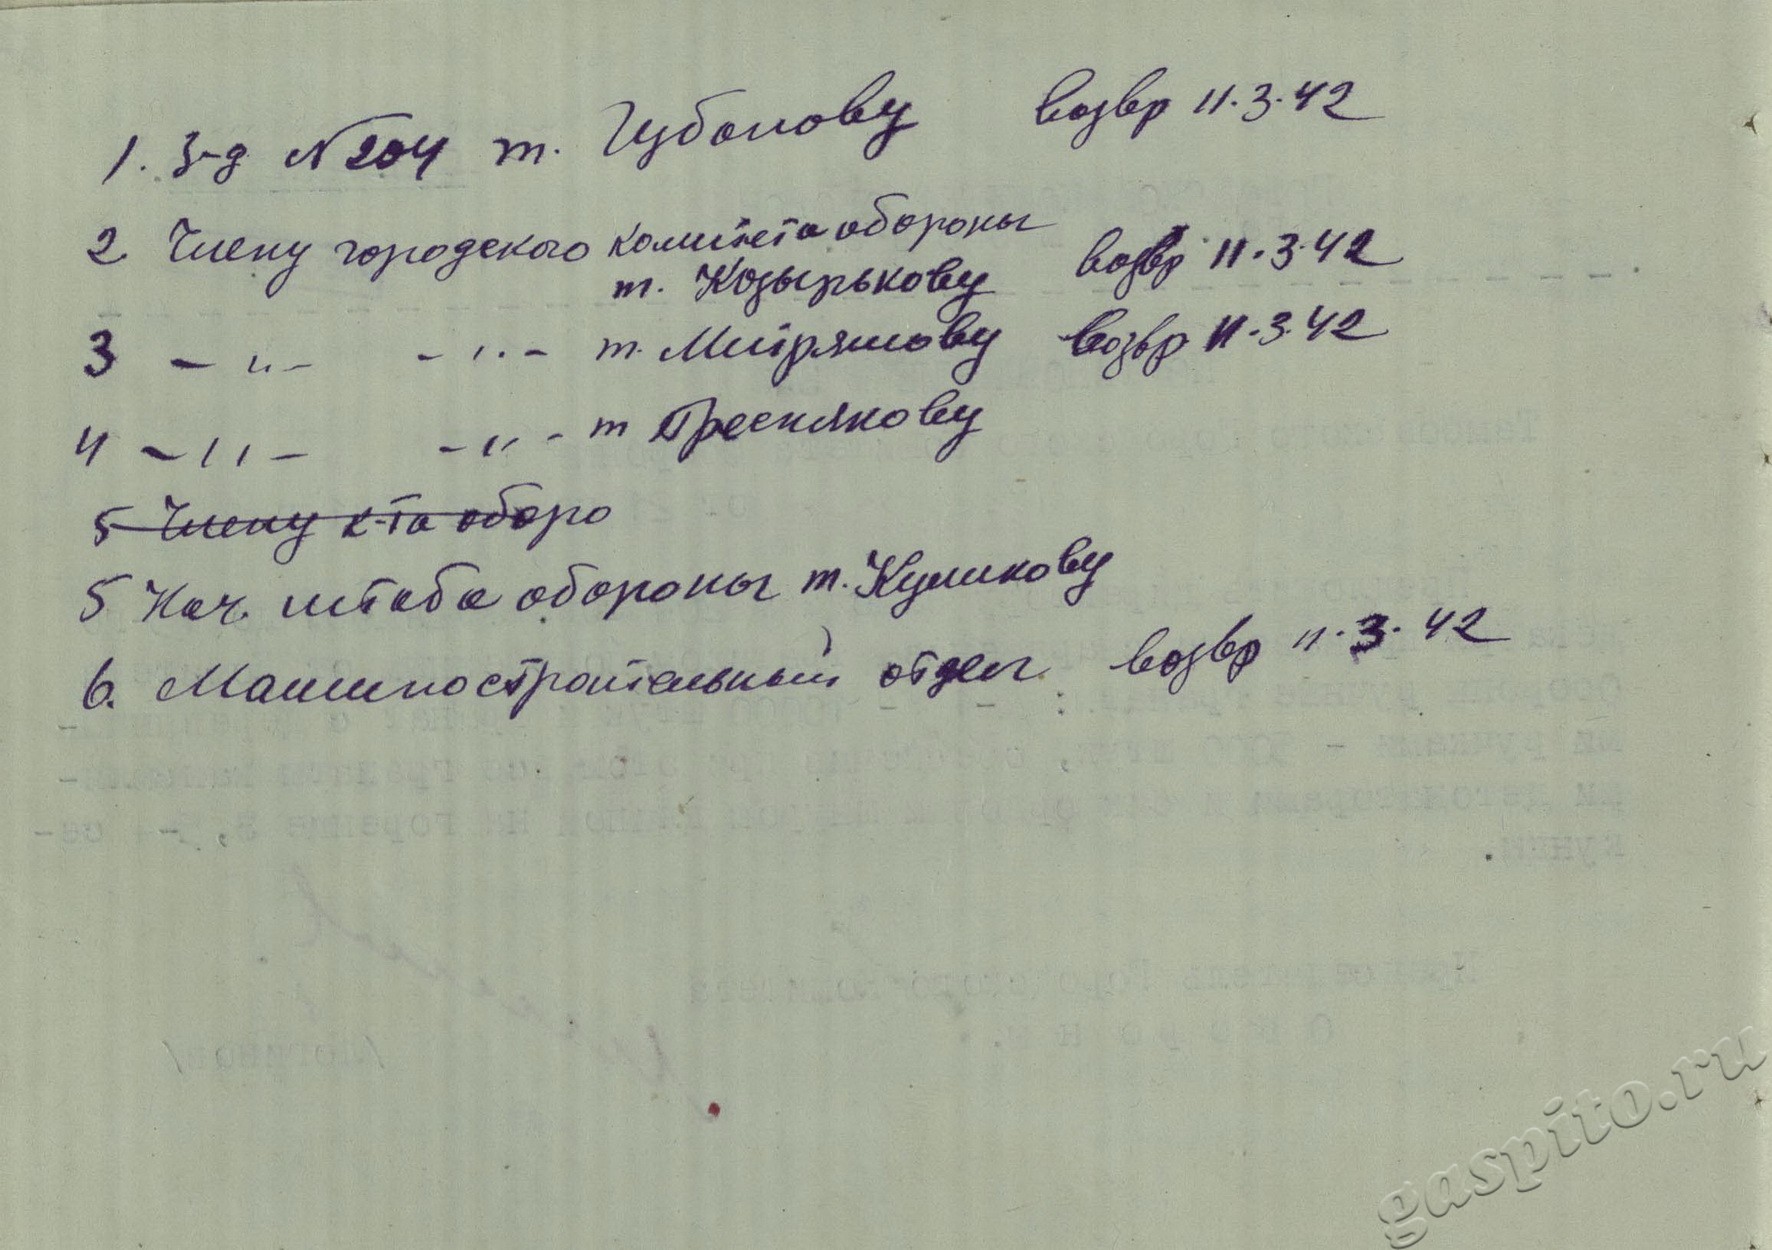 1. З-д №204 т. Губанову возвр 11.3.42
2 Члену городского комитета обороны
т. Козырькову возвр 11.3.42
3 – „ – – „ – т. Митряшову возвр 11.3.42
4 – „ – – „ – т Преснякову
5 Члену к-та оборо
5 Нач. штаба обороны т. Кушкову
6. Машиностроительный отдел возвр 11.3.42
gaspito.ru